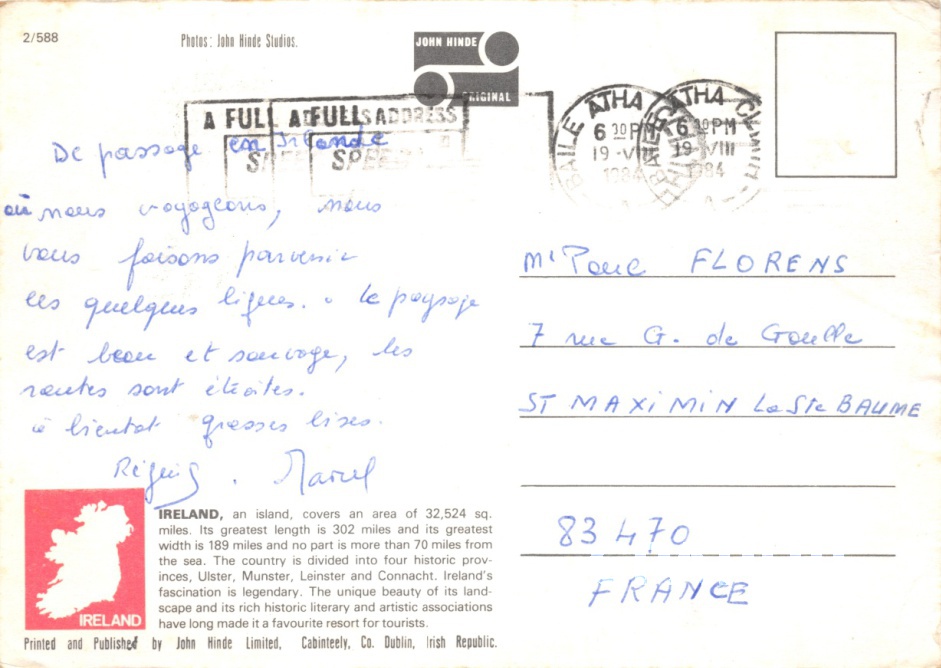 2/588
Photos: John Hinde Studios.
JOHN HINDE
ORIGINAL
A FULL ADDRESS
A FULL ADDRESS
BAILE ATHA CLIATH
6 30 PM
19 -VIII
1984
BAILE ATHA CLIATH
6 30 PM
19 -VIII
1984
De passage en Irlande
où nous voyageons, nous
vous faisons parvenir
ces quelques lignes. le paysage
est beau et sauvage, les
routes sont étroites.
à bientot grosses bises.
Marcel
Mr FLORENS
7 rue G. de Gaulle
ST MAXIMIN La Ste BAUME
83 470
FRANCE
IRELAND, an island, covers an area of 32,524 sq.
miles. Its greatest length is 302 miles and its greatest
width is 189 miles and no part is more than 70 miles from
the sea. The country is divided into four historic prov-
inces, Ulster, Munster, Leinster and Connacht. Ireland's
fascination is legendary. The unique beauty of its land-
scape and its rich historic literary and artistic associations
have long made it a favourite resort for tourists.
IRELAND
Printed and Published by John Hinde Limited, Cabinteely, Co. Dublin, Irish Republic.